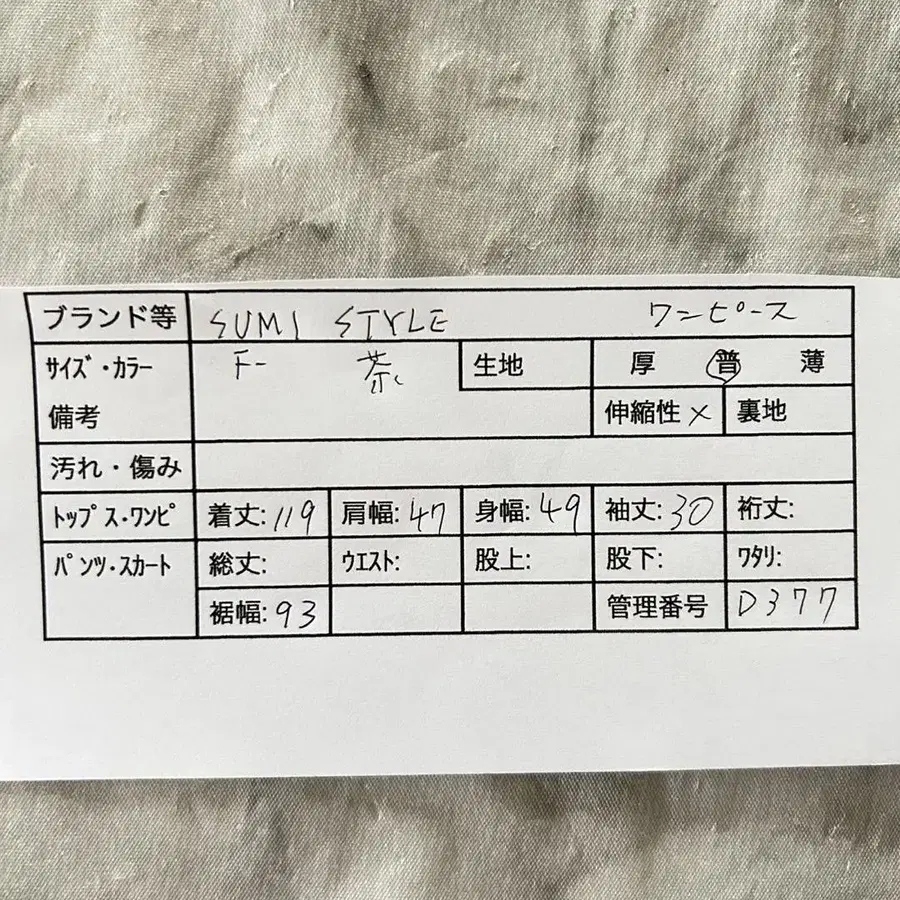 ブランド等 SUMI STYLE ワンピース
サイズ・カラー F- 茶 生地 厚 普 薄
備考 伸縮性 × 裏地
汚れ・傷み
トップス・ワンピ 着丈:119 肩幅:47 身幅:49 袖丈:30 裄丈:
パンツ・スカート 総丈: ウエスト: 股上: 股下: ワタリ:
裾幅:93 管理番号 D377